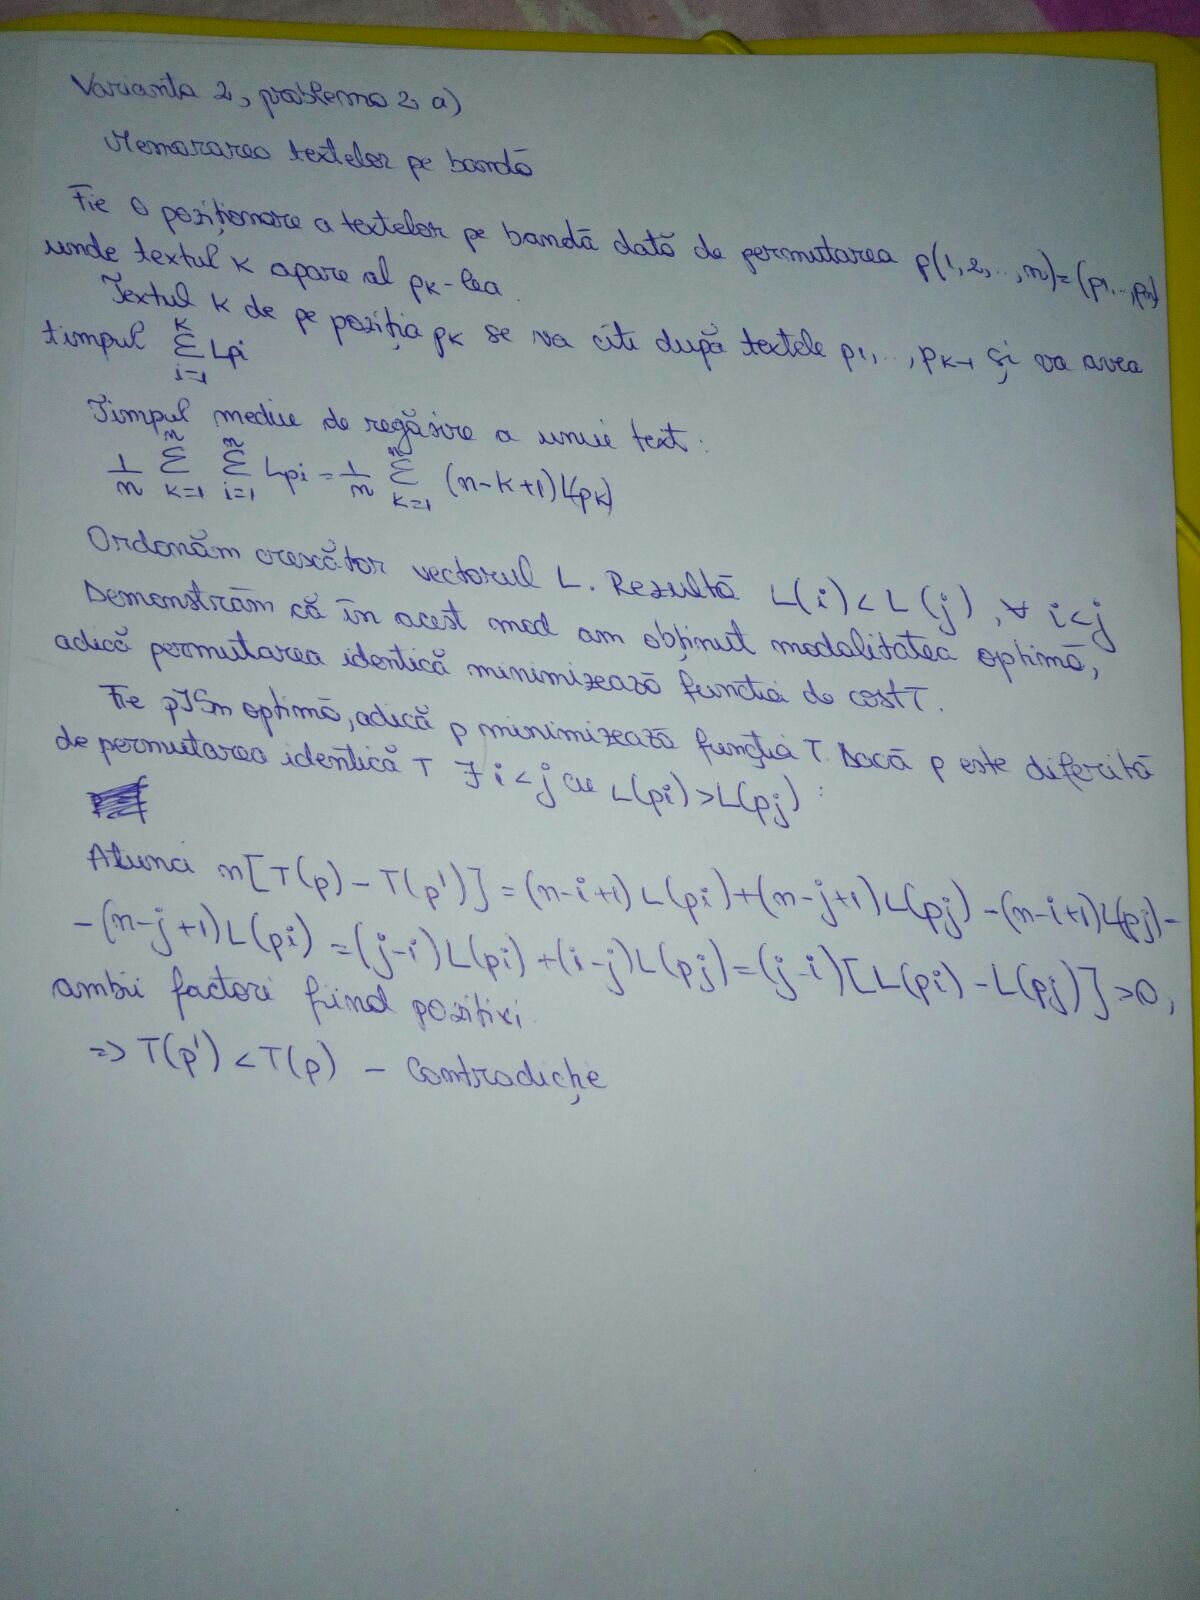 Varianta 2, problema 2 a)
Memorarea textelor pe bandă
Fie o poziționare a textelor pe bandă dată de permutarea p(1,2,...,n)=(p1,...,pn)
unde textul k apare al pk-lea.
Textul k de pe poziția pk se va citi după textele p1,...,pk-1 și va avea
timpul Σ_{i=1}^{k} Lpi
Timpul mediu de regăsire a unui text:
1/n Σ_{k=1}^{n} Σ_{i=1}^{n} Lpi = 1/n Σ_{k=1}^{n} (n-k+1)L(pk)
Ordonăm crescător vectorul L. Rezultă L(i)<L(j), ∀ i<j
Demonstrăm că în acest mod am obținut modalitatea optimă,
adică permutarea identică minimizează funcția de cost T.
Fie optimă, adică p minimizează funcția T. Dacă p este diferită
de permutarea identică T ∃ i<j cu L(pi)>L(pj):
Atunci n[T(p)-T(p')]=(n-i+1)L(pi)+(n-j+1)L(pj)-(n-i+1)L(pj)-
-(n-j+1)L(pi)=(j-i)L(pi)+(i-j)L(pj)=(j-i)[L(pi)-L(pj)]>0,
ambii factori fiind pozitivi.
=> T(p')<T(p) - Contradicție